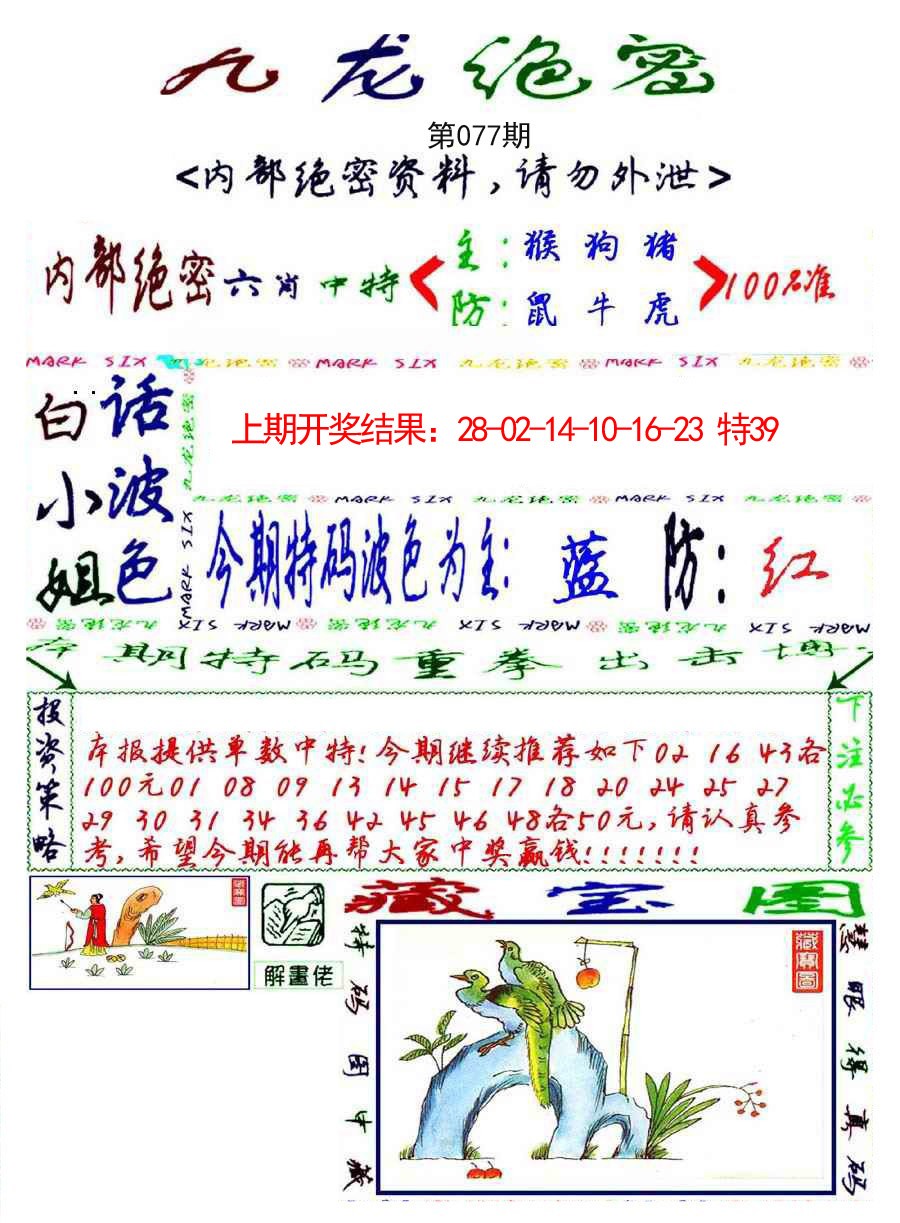 九龙绝密
第077期
<内部绝密资料,请勿外泄>
内部绝密六肖中特
主:猴狗猪
防:鼠牛虎
100%准
MARK SIX 九龙绝密 MARK SIX 九龙绝密 MARK SIX 九龙绝密
白话小姐波色
九龙绝密
MARK SIX
上期开奖结果：28-02-14-10-16-23 特39
九龙绝密 MARK SIX 九龙绝密 MARK SIX 九龙绝密
今期特码波色为主: 蓝 防: 红
九龙绝密 MARK SIX 九龙绝密 MARK SIX 九龙绝密 MARK SIX
本期特码重拳出击
投资策略
本报提供单数中特!今期继续推荐如下02 16 43各
100元01 08 09 13 14 15 17 18 20 24 25 27
29 30 31 34 36 42 45 46 48各50元,请认真参
考,希望今期能再帮大家中奖赢钱!!!!!!!
下注必参
解畫佬
藏宝图
特码图中藏
藏寶圖
慧眼得真码